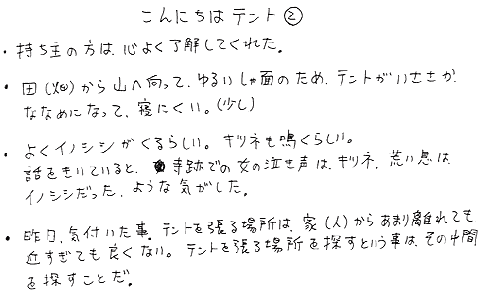 こんにちは テント②
・持ち主の方は、心よく了解してくれた。
・田(畑)から山へ向って、ゆるいしゃ面のため、テントがいささか
ななめになって、寝にくい。(少し)
・よくイノシシがくるらしい。キツネも鳴くらしい。
話をきいていると、寺跡での女の泣き声は、キツネ、荒い息は、
イノシシだった、ような気がした。
・昨日、気付いた事。テントを張る場所は、家(人)からあまり離れても
近すぎても良くない。テントを張る場所を探すという事は、その中間
を探すことだ。